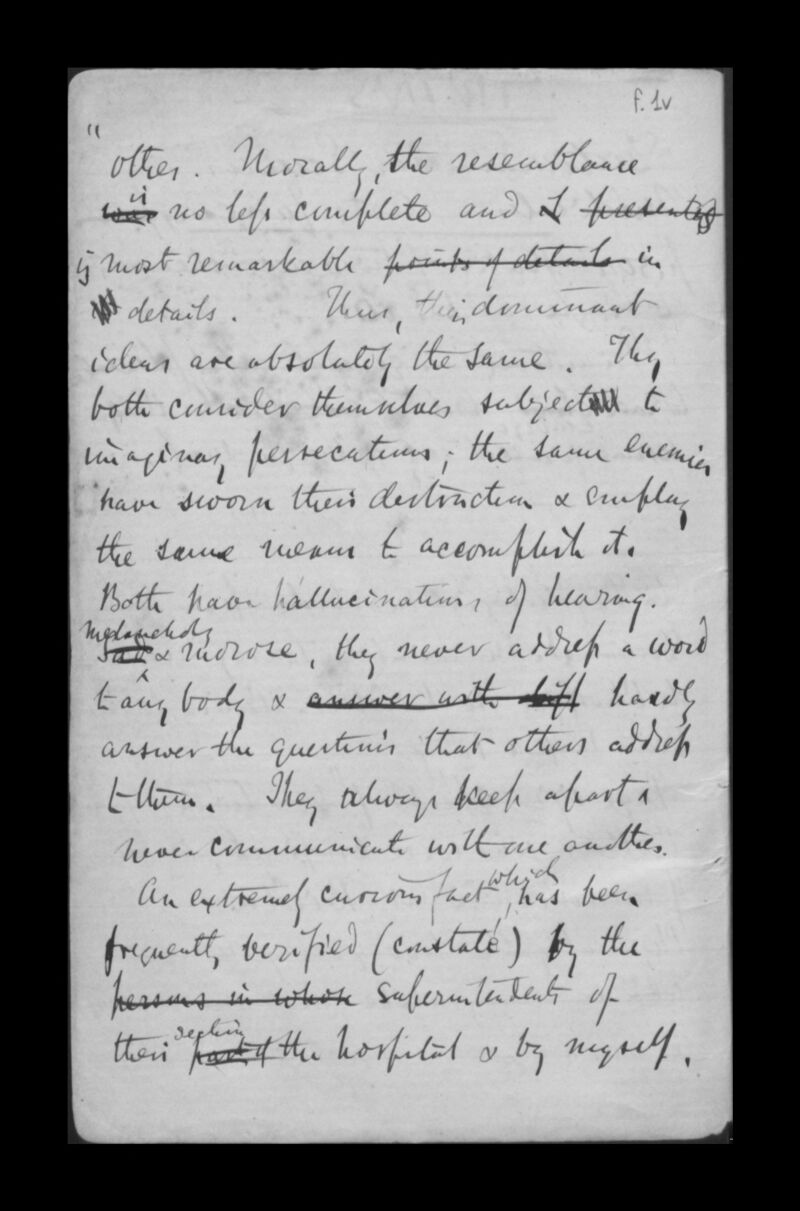 f. 1v
"
other. Morally, the resemblance
was is no less complete and I presented
is most remarkable points of details in
details. Thus, their dominant
ideas are absolutely the same. They
both consider themselves subject to
imaginary persecutions; the same enemies
have sworn their destruction & employ
the same means to accomplish it.
Both have hallucinations of hearing.
melancholy
sad & morose, they never address a word
to any body & answer with diff hardly
answer the questions that others address
to them. They always keep apart &
never communicate with one another.
An extremely curious fact, which has been
frequently verified (constaté) by the
persons in whose superintendents of
section
their part of the hospital & by myself.